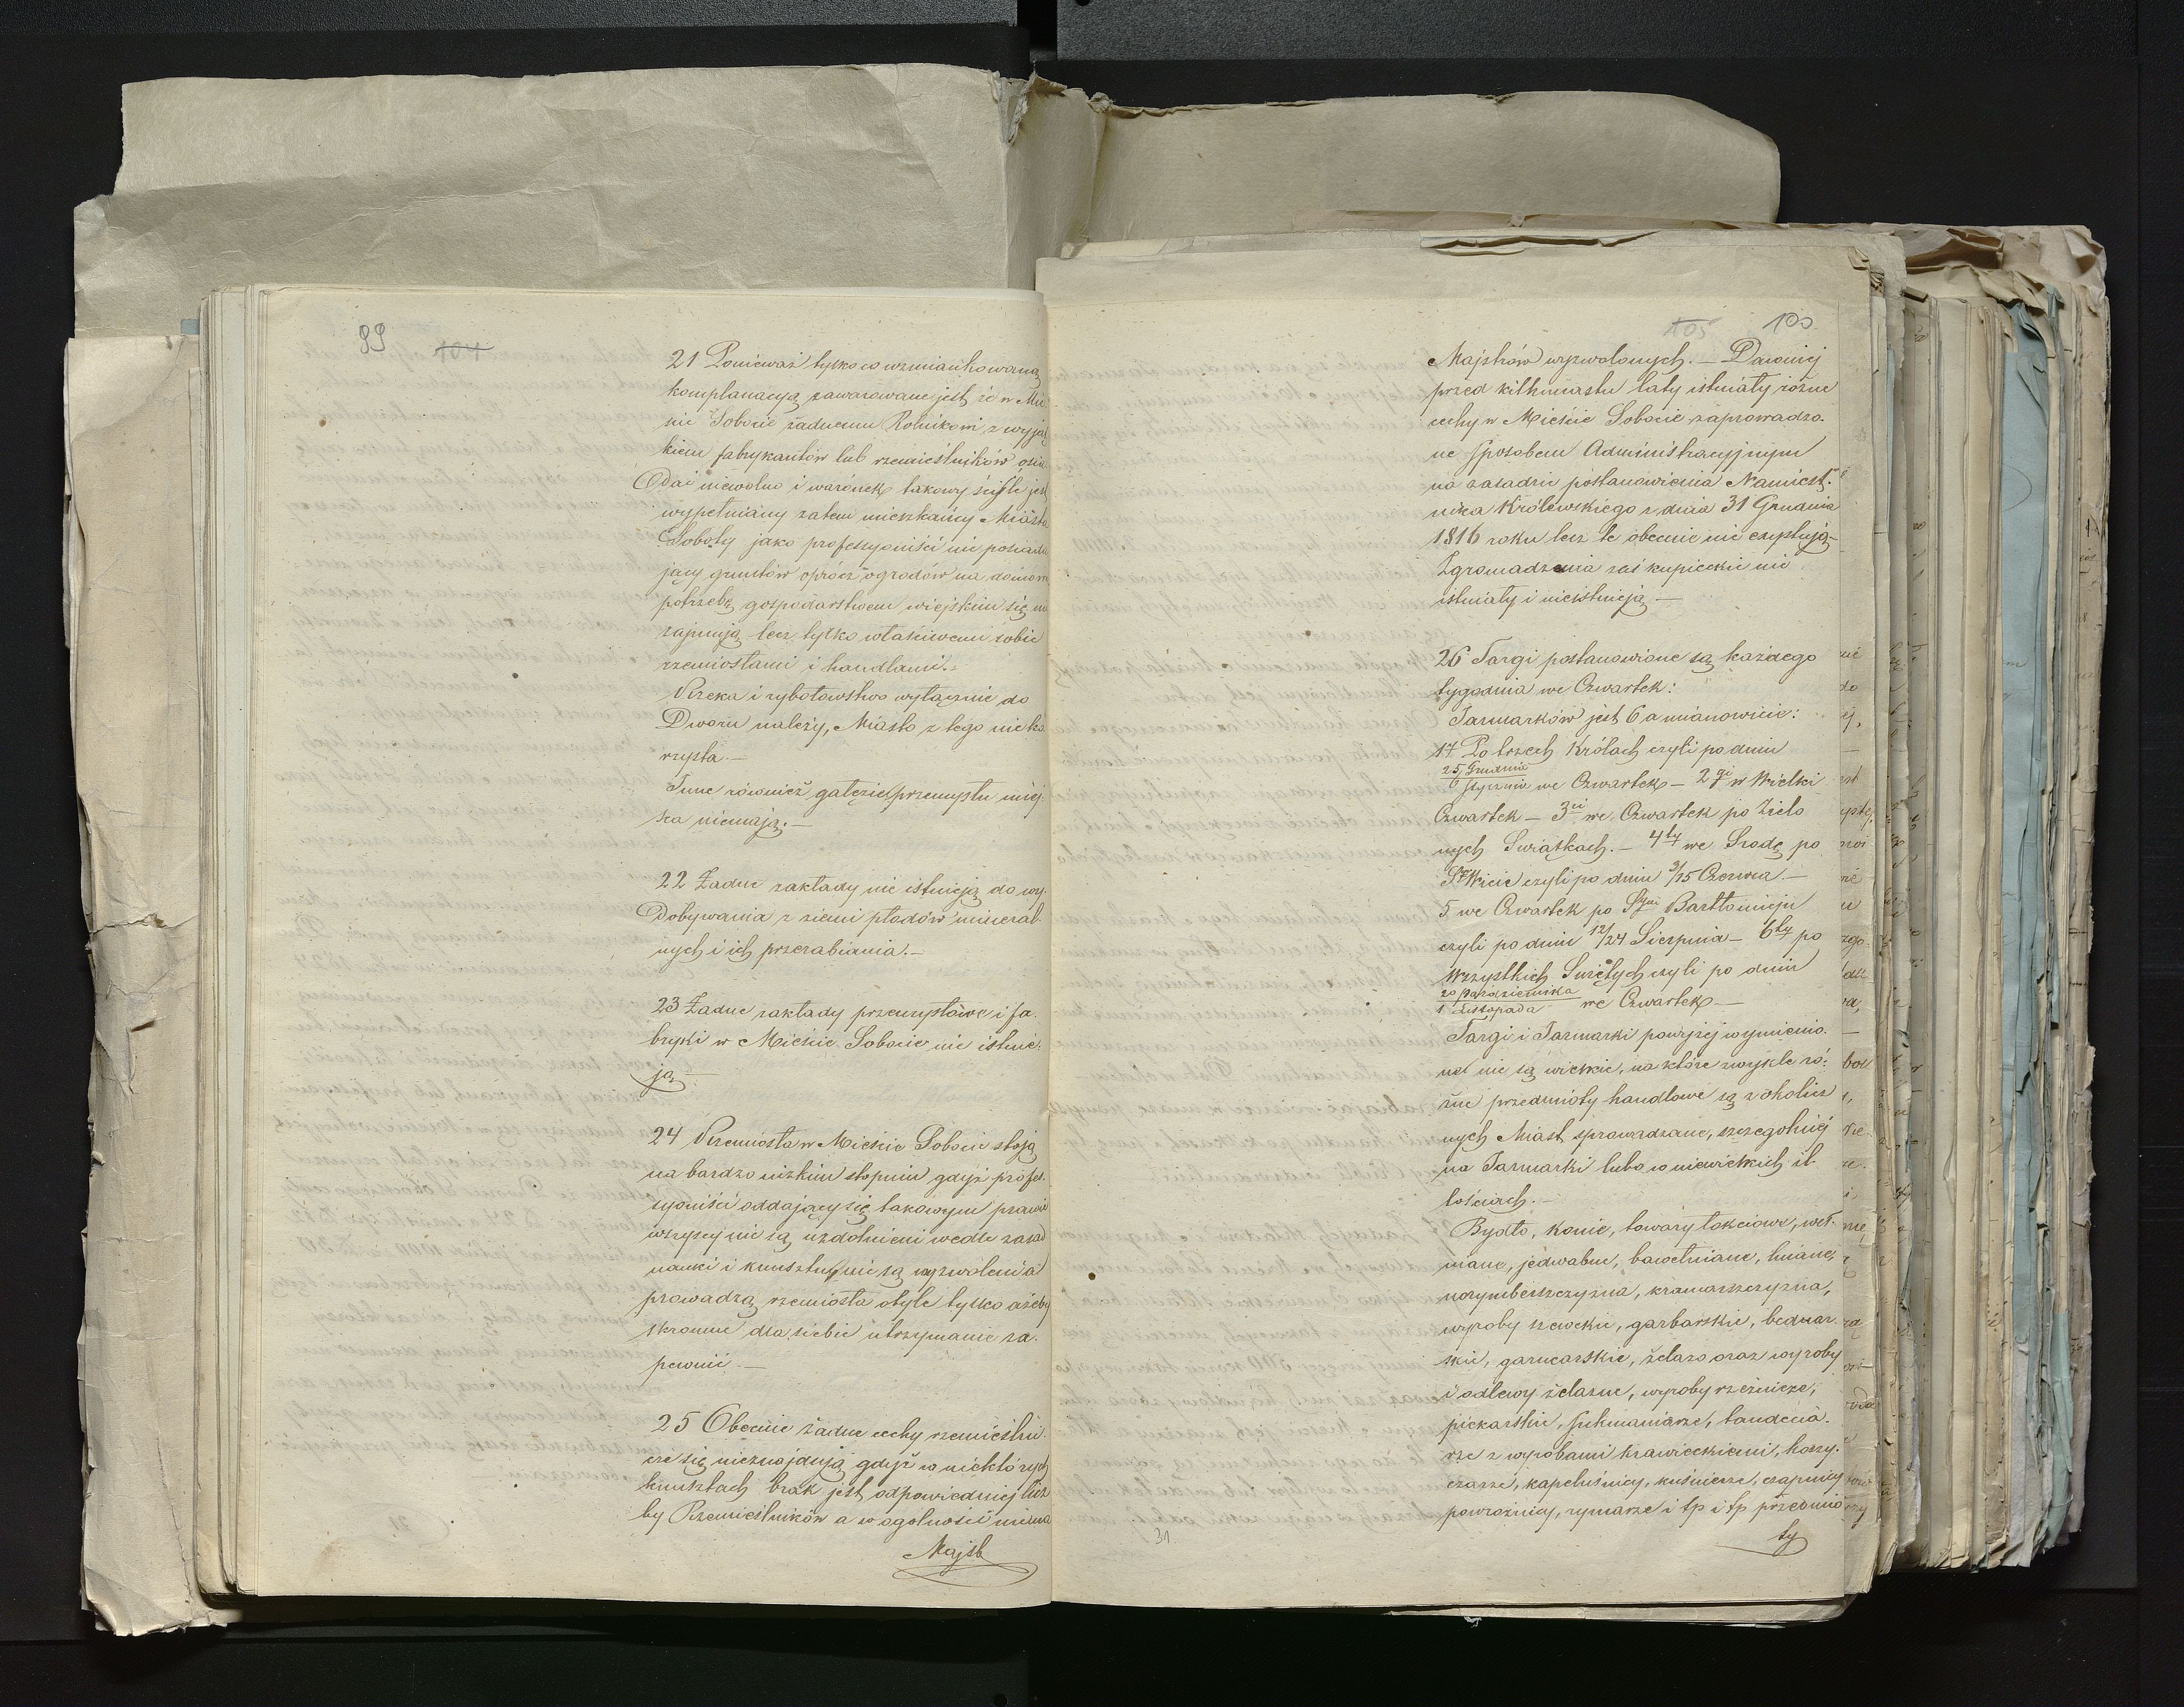 99 104
21 Ponieważ tylko co wzmiankowaną
komplanacyą zawarowane jest że w Mie
ście Sobocie żadnemu Rolnikowi z wyjąt
kiem fabrykantów lub rzemieślników osia
dać niewolno i warunek takowy ściśle jest
wypełniany zatem mieszkańcy Miasta
Soboty jako professyoniści nie posiada
jący gruntów oprócz ogrodów na domową
potrzebę gospodarstwem wiejskim się nie
zajmują lecz tylko właściwemi sobie
rzemiosłami i handlami.
Rzeka i rybołowstwo wyłącznie do
Dworu należy, Miasto z tego nie ko
rzysta.—
Inne również gałęzie przemysłu miej
sca niemają.—
22 Żadne zakłady nie istnieją do wy-
dobywania z ziemi płodów mineral
nych i ich przerabiania.—
23 Żadne zakłady przemysłowe i fa-
bryki w Mieście Sobocie nie istnie-
ją—
24 Rzemiosła w Mieście Sobocie stoją
na bardzo nizkim stopniu gdyż profes-
syoniści oddający się takowym prawie
wszyscy nie są uzdolnieni wedle zasad
nauki i kunsztu, nie są wyzwoleni a
prowadzą rzemiosła otyle tylko ażeby
skromne dla siebie utrzymanie za-
pewnić.—
25 Obecnie żadne cechy rzemieślni-
cze się nieznajdują gdyż w niektórych
kunsztach brak jest odpowiedniej licz
by Rzemieślników a w ogolności niema
Majst
105 100
Majstrów wyzwolonych.— Dawniej
przed kilkunastu laty istniały różne
cechy w Mieście Sobocie zaprowadzo-
ne sposobem Administracyjnym
na zasadzie postanowienia Namiest-
nika Królewskiego z dnia 31 Grudnia
1816 roku lecz te obecnie nie exystują—
Zgromadzenia zaś kupieckie nie
istniały i nieistnieją—
26 Targi postanowione są każdego
tygodnia we Czwartek:
Jarmarków jest 6 a mianowicie:
1y Po trzech Królach czyli po dniu
25 Grudnia
6 Stycznia we Czwartek— 2gi w Wielki
Czwartek— 3ci we Czwartek po Zielo
nych Swiątkach.— 4ty we Srodę po
St. Wicie czyli po dniu 3/15 Czerwca.—
5 we Czwartek po Stym Bartłomieju
czyli po dniu 12/24 Sierpnia— 6ty po
Wszystkich Swiętych czyli po dniu
20 Października
1 Listopada we Czwartek—
Targi i Jarmarki powyżej wymienio-
ne nie są wielkie, na które zwykle ró-
żne przedmioty handlowe są z okolicz
nych Miast sprowadzane, szczegolniej
na Jarmarki lubo w niewielkich il-
lościach.—
Bydło, konie, towary łokciowe, weł-
niane, jedwabne, bawełniane, lniane,
norymberszczyzna, kramarszczyzna,
wyroby szewckie, garbarskie, bednar-
skie, garncarskie, żelazo oraz wyroby
i odlewy żelazne, wyroby rzeźnicze,
piekarskie, sukmaniarze, tandecia-
rze z wyrobami krawieckiemi, koszy-
czarze, kapelusznicy, kuśnierze, czapnicy
powroźnicy, rymarze i tp i tp przedmio
ty
31.